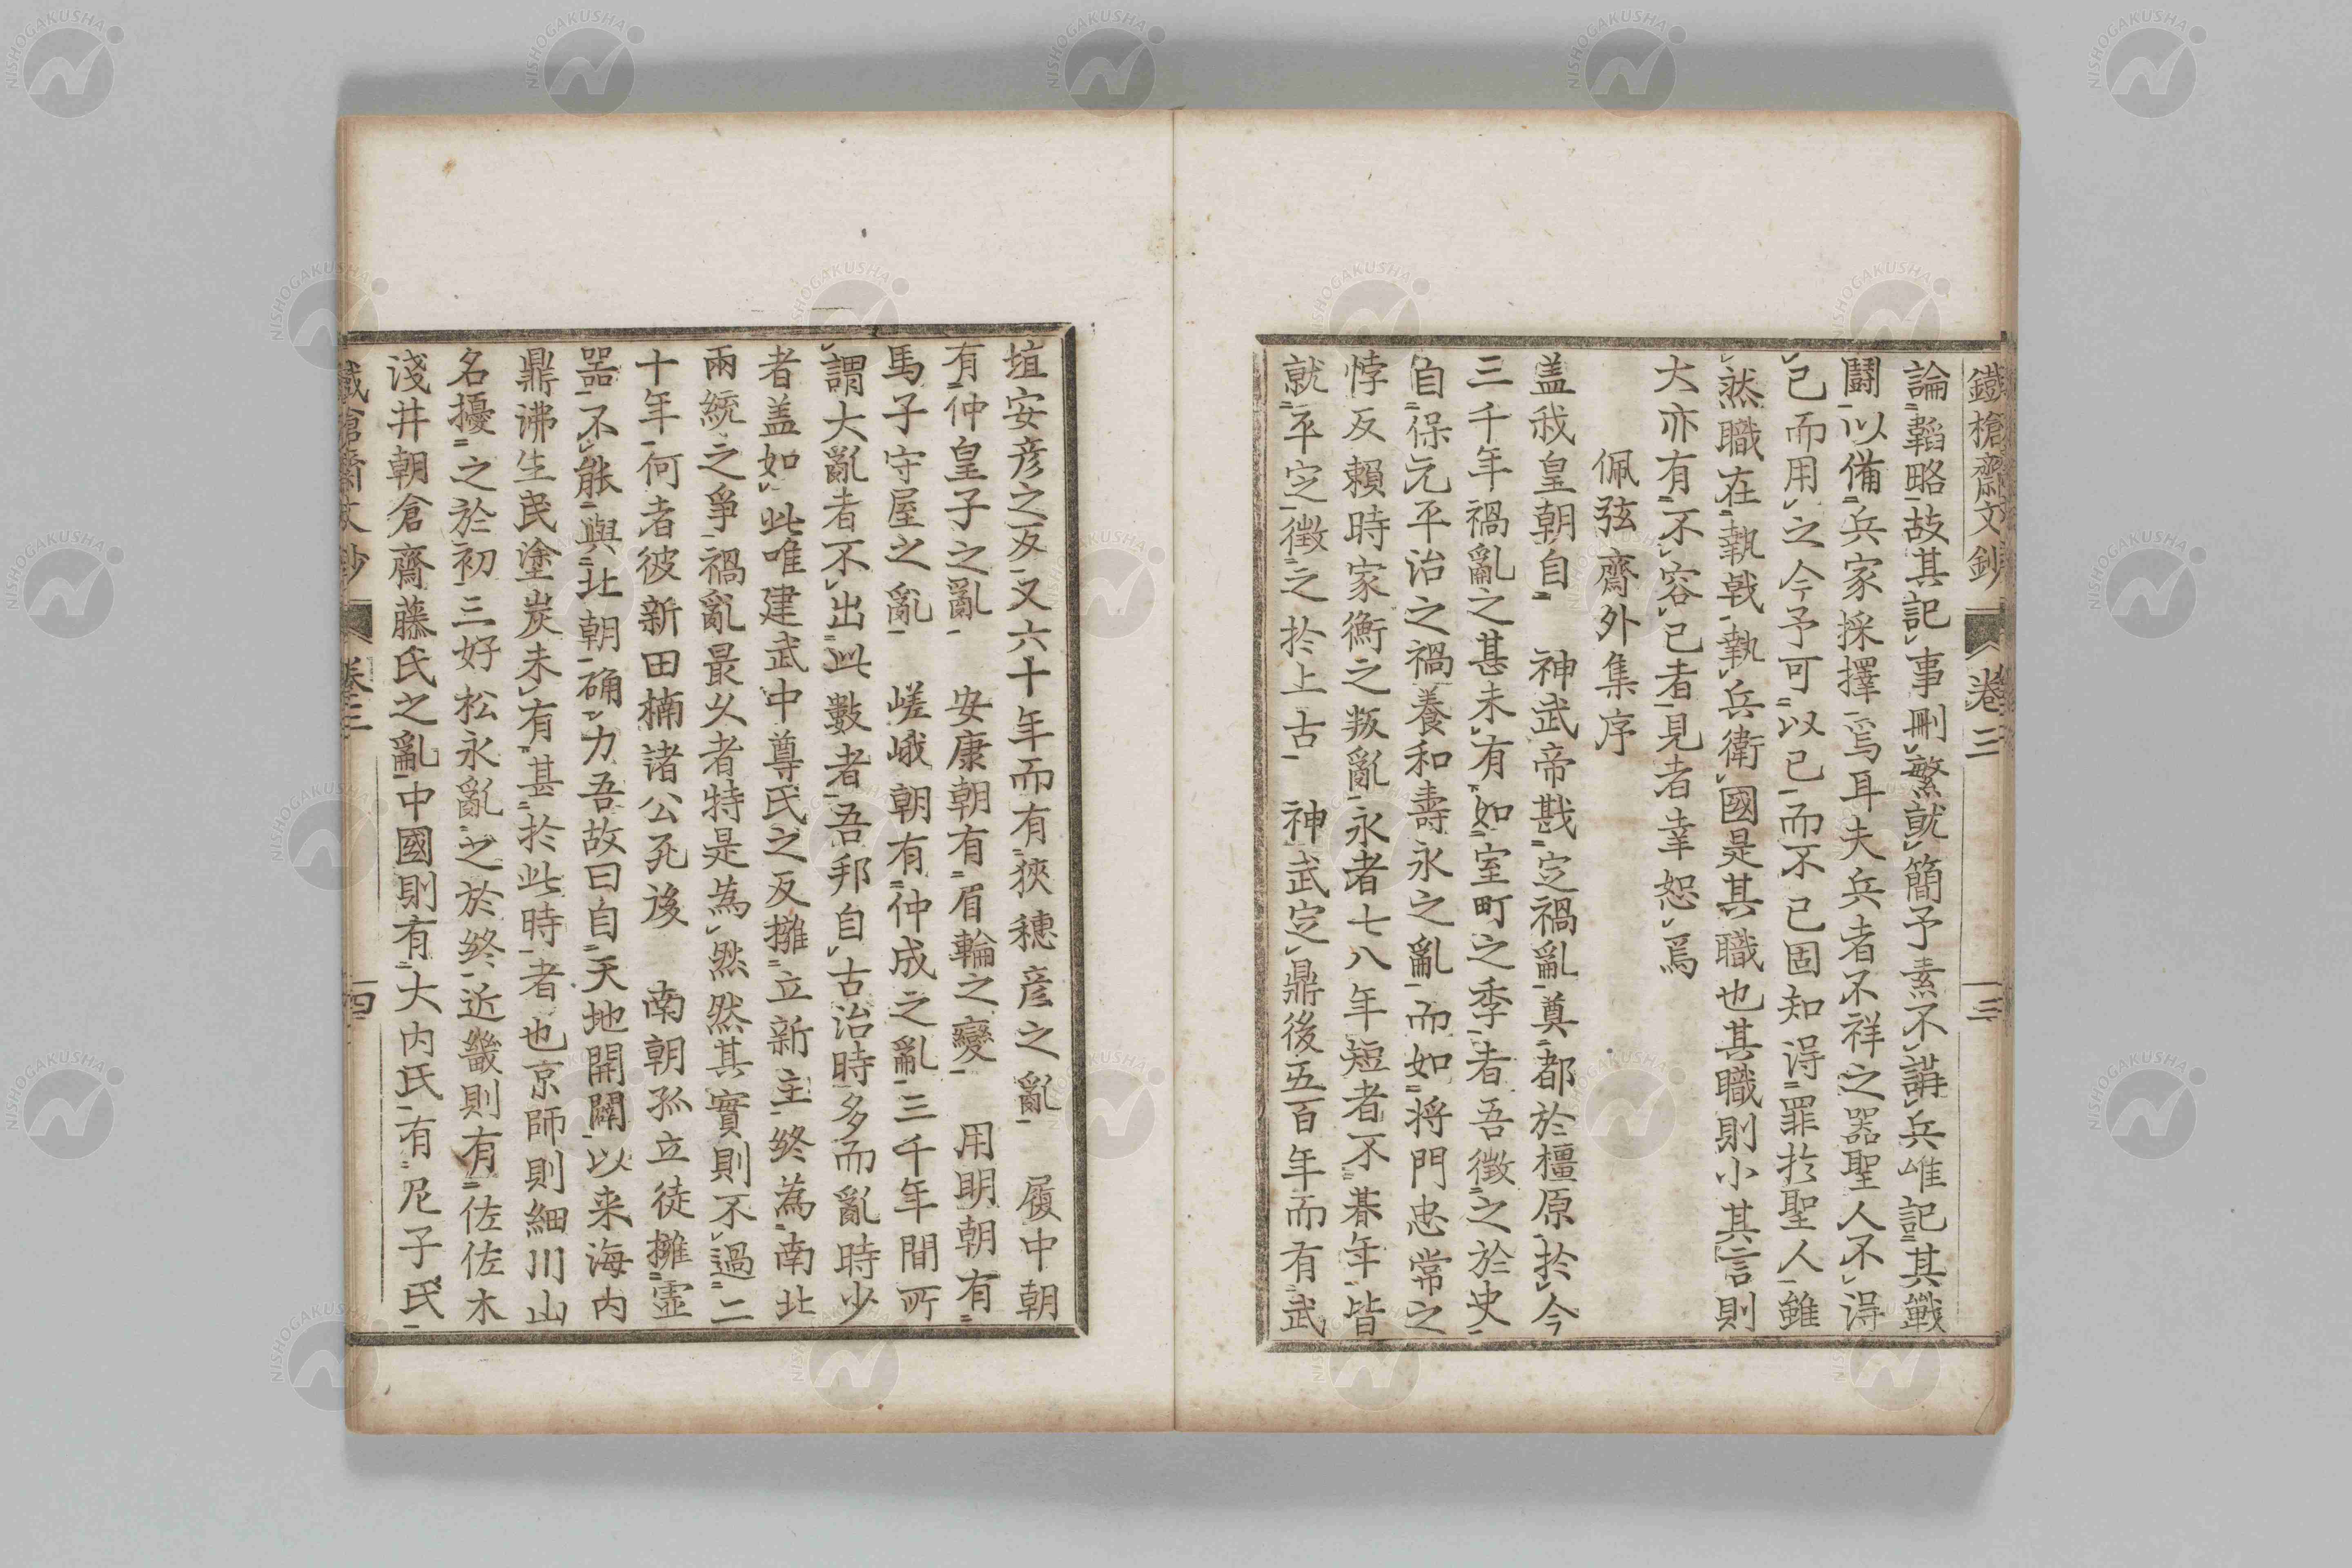 鐵槍齋文鈔 卷三 三
論韜略故其記事刪繁就簡予素不講兵唯記其戰
鬪以備兵家採擇焉耳夫兵者不祥之器聖人不得
已而用之今予可以已而不已固知得罪於聖人雖
然職在執戟執兵衛國是其職也其職則小其言則
大亦有不容已者見者幸恕焉
佩弦齋外集序
盖我皇朝自 神武帝戡定禍亂奠都於橿原於今
三千年禍亂之甚未有如室町之季者吾徵之於史
自保元平治之禍養和壽永之亂而如將門忠常之
悖反賴時家衡之叛亂永者七八年短者不朞年皆
就平定徵之於上古 神武定鼎後五百年而有武
埴安彦之反又六十年而有狹穗彦之亂 履中朝
有仲皇子之亂 安康朝有眉輪之變 用明朝有
馬子守屋之亂 嵯峨朝有仲成之亂三千年間所
謂大亂者不出此數者吾邦自古治時多而亂時少
者盖如此唯建武中尊氏之反擁立新主終為南北
兩統之爭禍亂最久者特是為然然其實則不過二
十年何者彼新田楠諸公死後 南朝孤立徒擁霊
器不能與北朝确力吾故曰自天地開闢以来海内
鼎沸生民塗炭未有甚於此時者也京師則細川山
名擾之於初三好松永亂之於終近畿則有佐佐木
淺井朝倉齋藤氏之亂中國則有大内氏有尼子氏
鐵槍齋文鈔 卷三 四